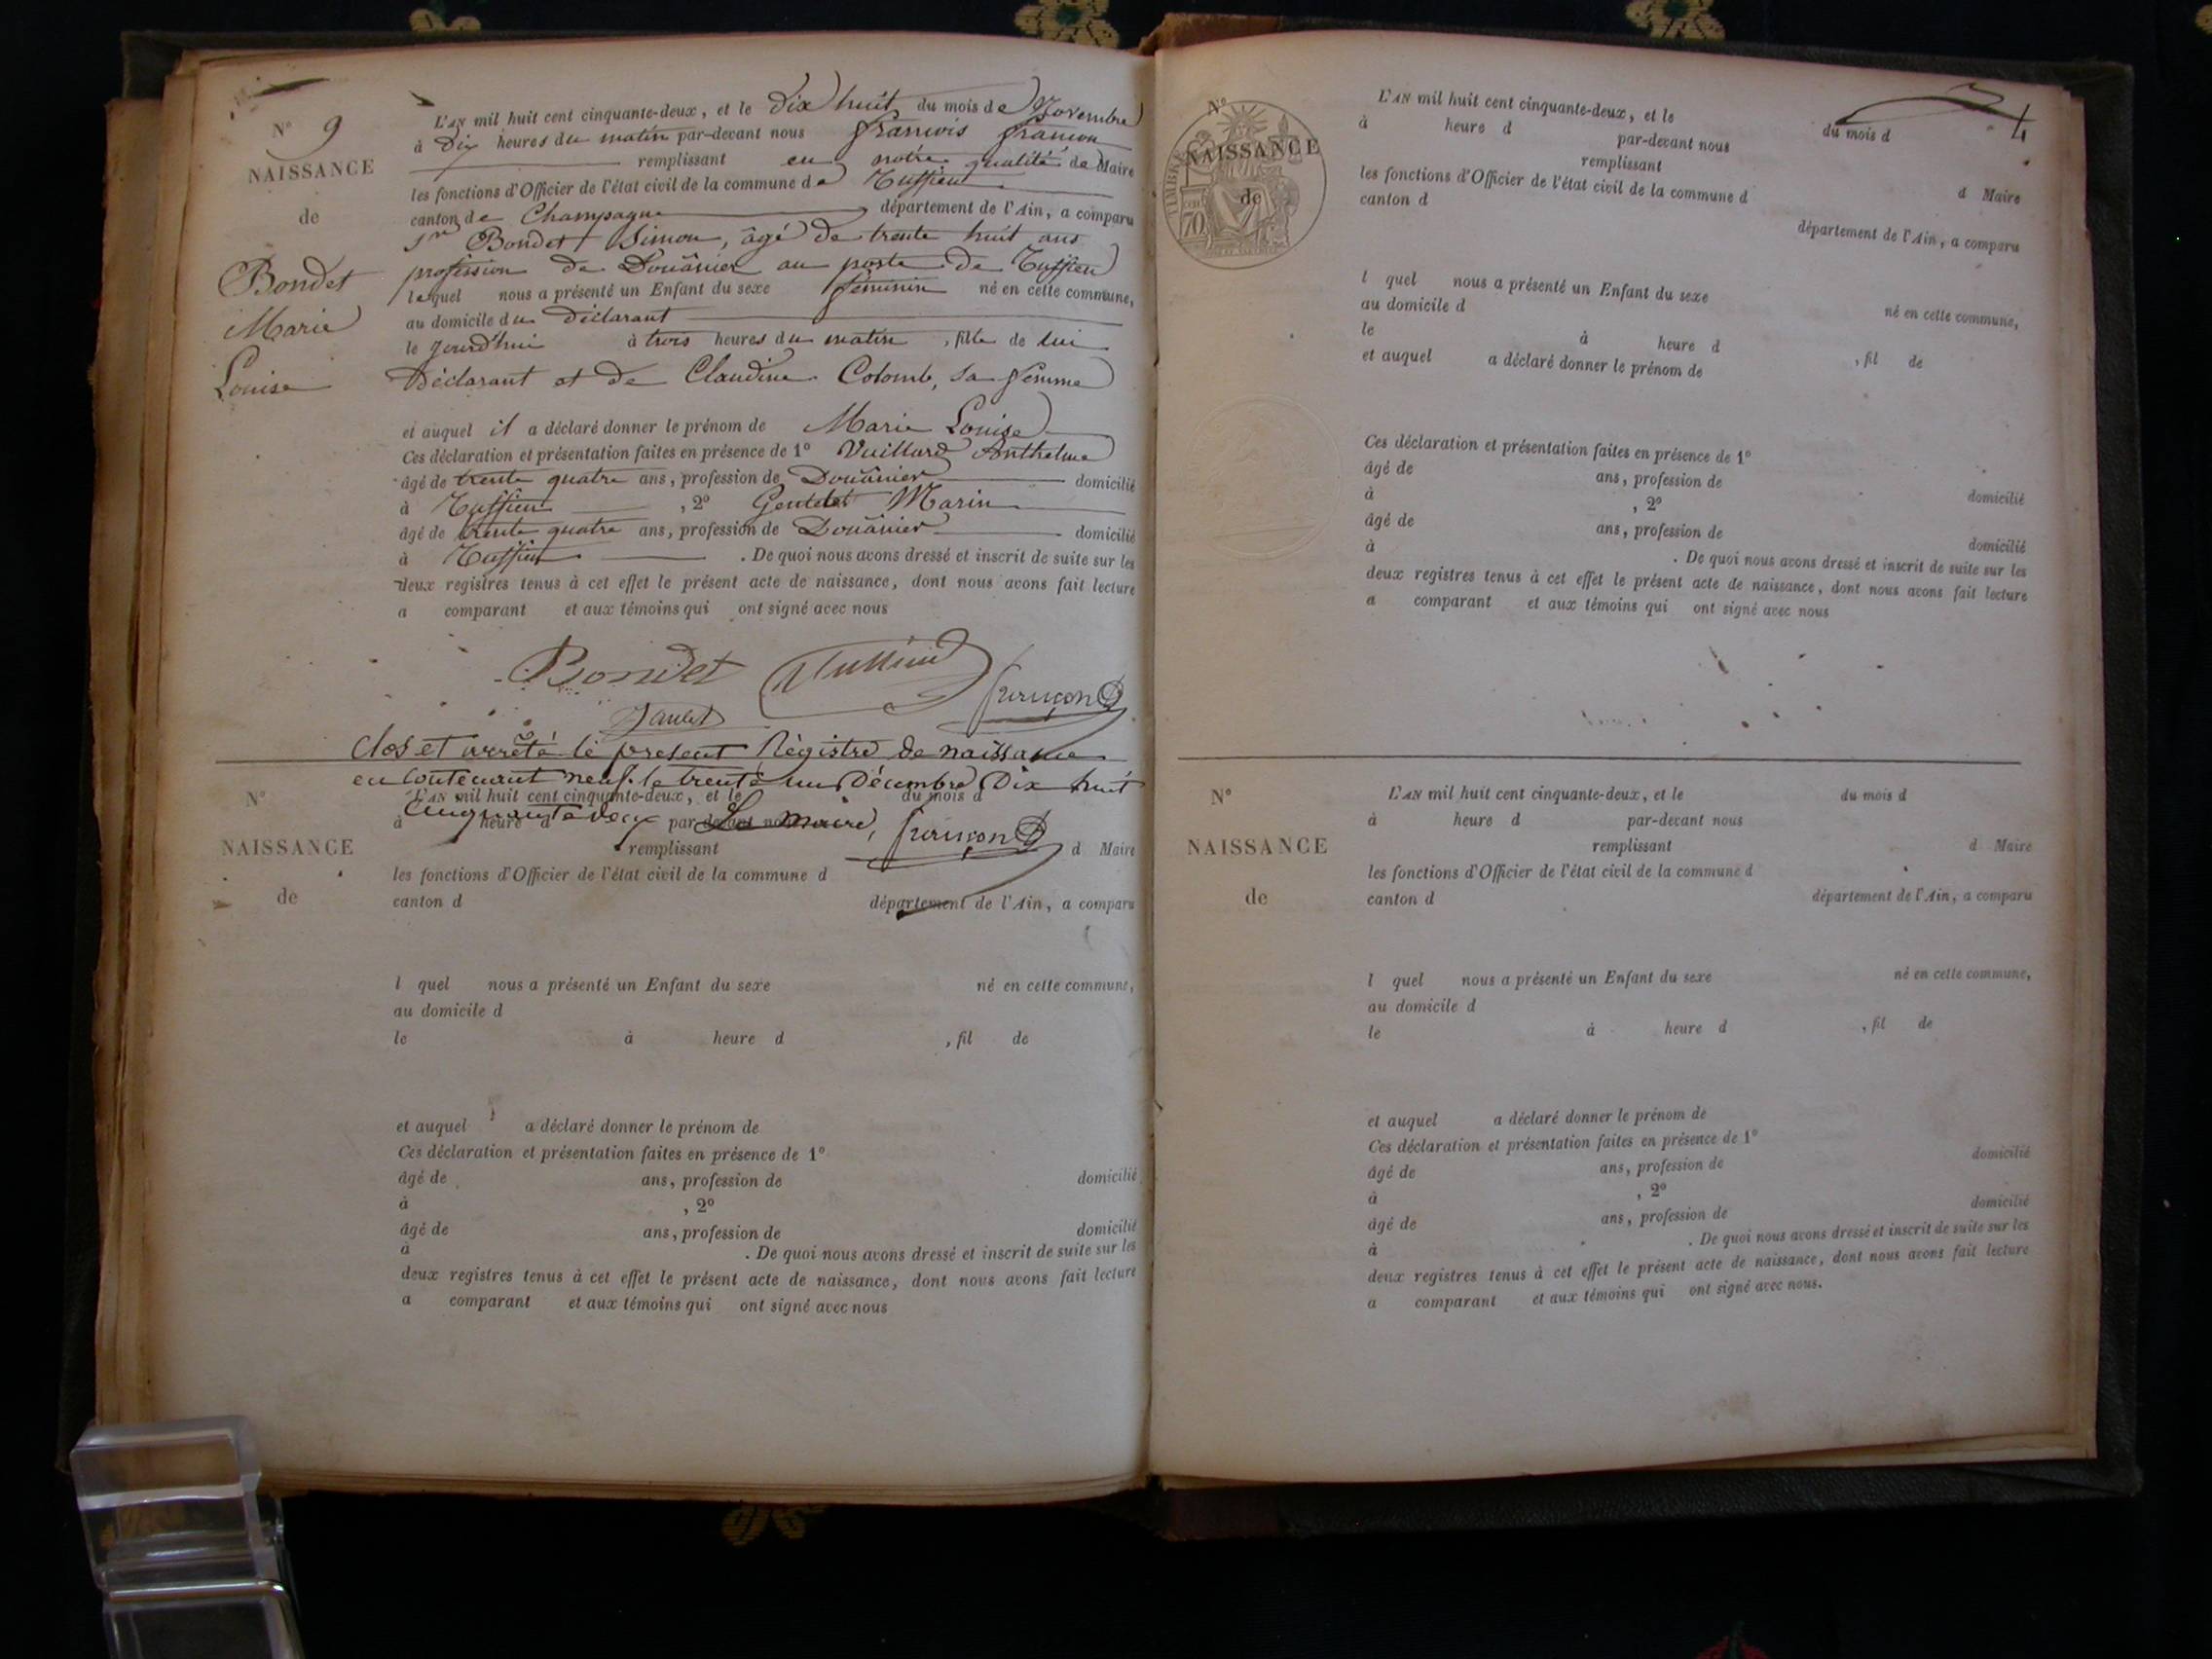 N° 9
NAISSANCE
de
Bondet
Marie
Louise
L'AN mil huit cent cinquante-deux, et le dix huit du mois de Novembre
à dix heures du matin par-devant nous françois françon
remplissant en notre qualité de Maire
les fonctions d'Officier de l'état civil de la commune de
canton de Champagne département de l'Ain, a comparu
Sr Bondet Simon, âgé de trente huit ans
profession de Douânier au poste de
lequel nous a présenté un Enfant du sexe féminin né en cette commune,
au domicile du déclarant
le jourd'hui à trois heures du matin, fille de lui
Déclarant et de Claudine Colomb, sa femme
et auquel il a déclaré donner le prénom de Marie Louise
Ces déclaration et présentation faites en présence de 1° Vuillard Anthelme
âgé de trente quatre ans, profession de Douânier domicilié
à , 2° Marin
âgé de trente quatre ans, profession de Douânier domicilié
à . De quoi nous avons dressé et inscrit de suite sur les
deux registres tenus à cet effet le présent acte de naissance, dont nous avons fait lecture
a comparant et aux témoins qui ont signé avec nous
Bondet
françon
Clos et arrêté le present Régistre de naissance
en contenant neuf. le trente un Décembre Dix huit
Cinquante deux Le maire, françon
N°
NAISSANCE
de
L'AN mil huit cent cinquante-deux, et le du mois d
à heure d par-devant nous
remplissant d Maire
les fonctions d'Officier de l'état civil de la commune d
canton d département de l'Ain, a comparu
l quel nous a présenté un Enfant du sexe né en cette commune,
au domicile d
le à heure d , fil de
et auquel a déclaré donner le prénom de
Ces déclaration et présentation faites en présence de 1°
âgé de ans, profession de domicilié
à , 2°
âgé de ans, profession de domicilié
à . De quoi nous avons dressé et inscrit de suite sur les
deux registres tenus à cet effet le présent acte de naissance, dont nous avons fait lecture
a comparant et aux témoins qui ont signé avec nous
4
N°
NAISSANCE
de
TIMBRE
70
L'AN mil huit cent cinquante-deux, et le du mois d
à heure d par-devant nous
remplissant d Maire
les fonctions d'Officier de l'état civil de la commune d
canton d département de l'Ain, a comparu
l quel nous a présenté un Enfant du sexe né en cette commune,
au domicile d
le à heure d , fil de
et auquel a déclaré donner le prénom de
Ces déclaration et présentation faites en présence de 1°
âgé de ans, profession de domicilié
à , 2°
âgé de ans, profession de domicilié
à . De quoi nous avons dressé et inscrit de suite sur les
deux registres tenus à cet effet le présent acte de naissance, dont nous avons fait lecture
a comparant et aux témoins qui ont signé avec nous
N°
NAISSANCE
de
L'AN mil huit cent cinquante-deux, et le du mois d
à heure d par-devant nous
remplissant d Maire
les fonctions d'Officier de l'état civil de la commune d
canton d département de l'Ain, a comparu
l quel nous a présenté un Enfant du sexe né en cette commune,
au domicile d
le à heure d , fil de
et auquel a déclaré donner le prénom de
Ces déclaration et présentation faites en présence de 1°
âgé de ans, profession de domicilié
à , 2°
âgé de ans, profession de domicilié
à . De quoi nous avons dressé et inscrit de suite sur les
deux registres tenus à cet effet le présent acte de naissance, dont nous avons fait lecture
a comparant et aux témoins qui ont signé avec nous.